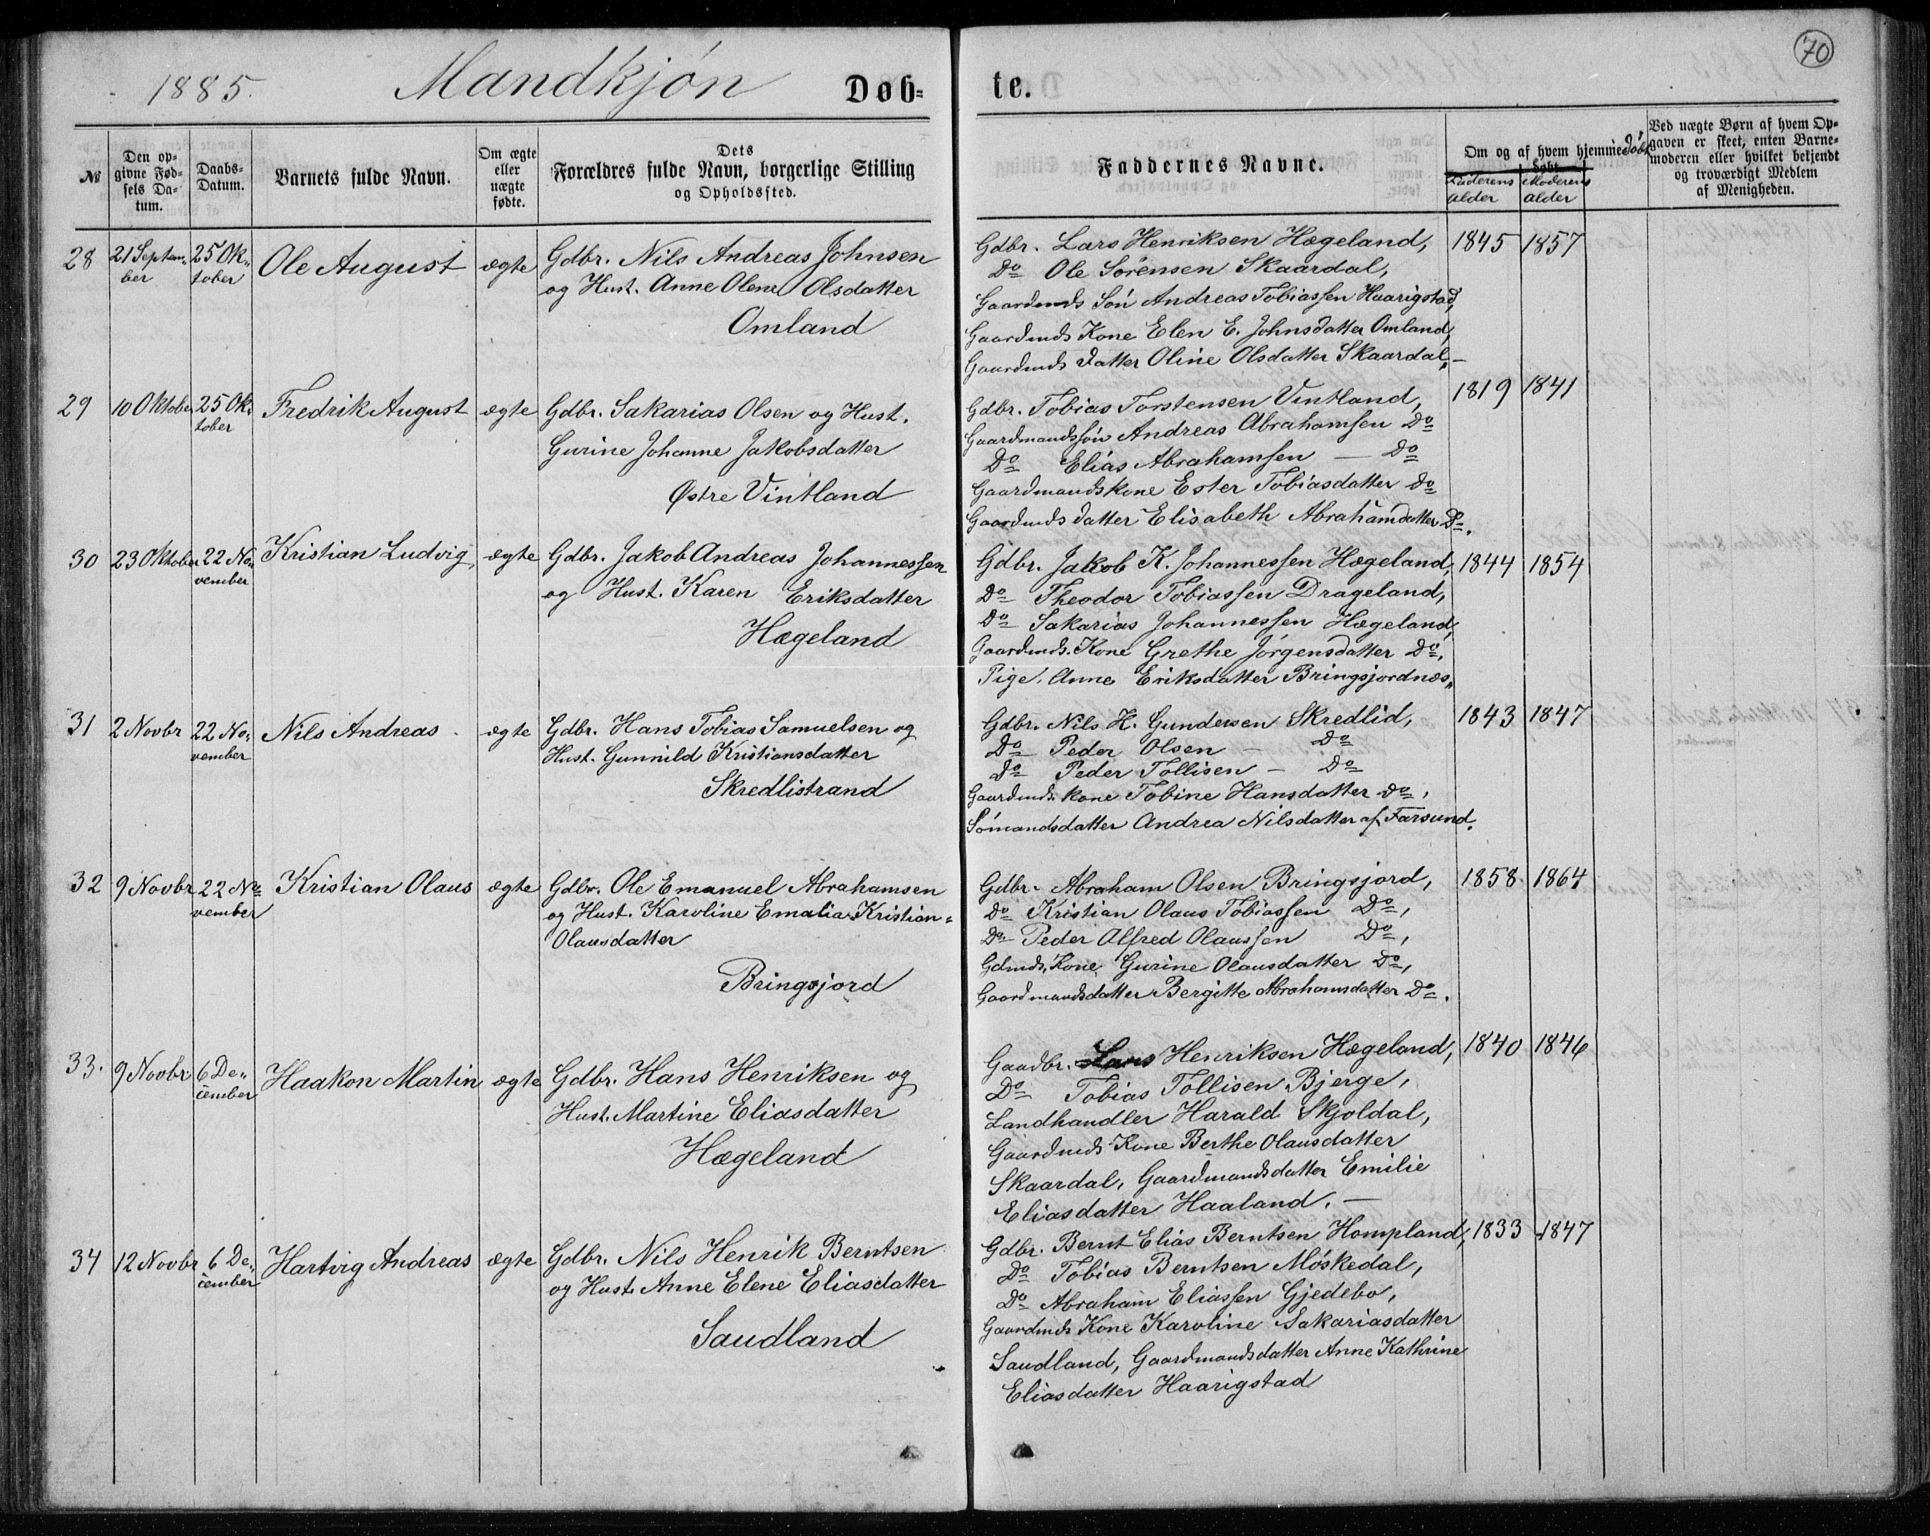 70
1885. Mandkjøn Døb- te.
№
Den op-
givne Fød-
sels Da-
tum.
Daabs-
Datum.
Barnets fulde Navn.
Om ægte
eller
uægte
fødte.
Dets
Forældres fulde Navn, borgerlige Stilling
og Opholdssted.
Faddernes Navne.
Om og af hvem hjemmedøbt
døbt.
Faderens alder
Moderens alder
Ved uægte Børn af hvem Op-
gaven er skeet, enten Barne-
moderen eller hvilket bekjendt
og troværdigt Medlem
af Menigheden.
28
21 Septem-
ber
25 Ok-
tober
Ole August
ægte
Gdbr. Nils Andreas Johnsen
og Hust. Anne Olene Olsdatter
Omland
Gdbr. Lars Henriksen Hægeland,
Do Ole Sørensen Skaardal,
Gaardmds Søn Andreas Tobiassen Haarigstad,
Gaardmds Kone Elen E. Johnsdatter Omland,
Gaardmds Datter Oline Olsdatter Skaardal,-
1845 1857
29
10 Oktober
25 Ok-
tober
Fredrik August
ægte
Gdbr. Sakarias Olsen og Hust.
Gurine Johanne Jakobsdatter
Østre Vintland
Gdbr. Tobias Torstensen Vintland,
Gaardmandssøn Andreas Abrahamsen Do
Do Elias Abrahamsen — Do
Gaardmandskone Ester Tobiasdatter Do
Gaardmds datter Elisabeth Abrahamdatter Do.
1819 1841
30
23 Oktober
22 No-
vember
Kristian Ludvig
ægte
Gdbr. Jakob Andreas Johannessen
og Hust. Karen Eriksdatter
Hægeland
Gdbr. Jakob K. Johannessen Hægeland,
Do Theodor Tobiassen Drageland,
Do Sakarias Johannessen Hægeland,
Gaardmds. Kone Grethe Jørgensdatter Do,
Pige. Anne Eriksdatter Bringsjordnæs"
1844 1854
31
2 Novbr
22 No-
vember
Nils Andreas.
ægte
Gdbr. Hans Tobias Samuelsen og
Hust. Gunnild Kristiansdatter
Skredlistrand
Gdbr. Nils H. Gundersen Skredlid,
Do Peder Olsen — Do
Do Peder Tollisen — Do
Gaardmds. kone Tobine Hansdatter Do,
Sømandsdatter Andrea Nilsdatter af Farsund.
1843 1847
32
9 Novbr
22 No
vember
Kristian Olaus
ægte
Gdbr. Ole Emanuel Abrahamsen
og Hust. Karoline Emalia Kristian-
Olausdatter
Bringsjord
Gdbr. Abraham Olsen Bringsjord,
Do Kristian Olaus Tobiassen Do,
Do Peder Alfred Olaussen Do,
Gdmds, Kone, Gurine Olausdatter Do,
Gaardmandsdatter Bergitte Abrahamsdatter Do.
1858 1864
33.
9 Novbr
6 De-
cember
Haakon Martin
ægte
Gdbr. Hans Henriksen og
Hust. Martine Eliasdatter
Hægeland
Gaadbr. Lars Henriksen Hægeland,
Do Tobias Tollisen Bjerge,
Landhandler Harald Skjoldal,
Gaardmds Kone Berthe Olausdatter
Skaardal, Gaardmandsdatter Emilie
Eliasdatter Haaland. —
1840 1846
34
12 Novbr
6 De-
cember
Hartvig Andreas
ægte
Gdbr. Nils Henrik Berntsen
og Hust. Anne Elene Eliasdatter
Saudland
Gdbr. Bernt Elias Berntsen Hompland,
Do Tobias Berntsen Møskedal,
Do Abraham Eliassen Gjedebo,
Gaardmds Kone Karoline Sakariasdatter
Saudland, Gaardmandsdatter Anne Kathrine
Eliasdatter Haarigstad
1833 1847